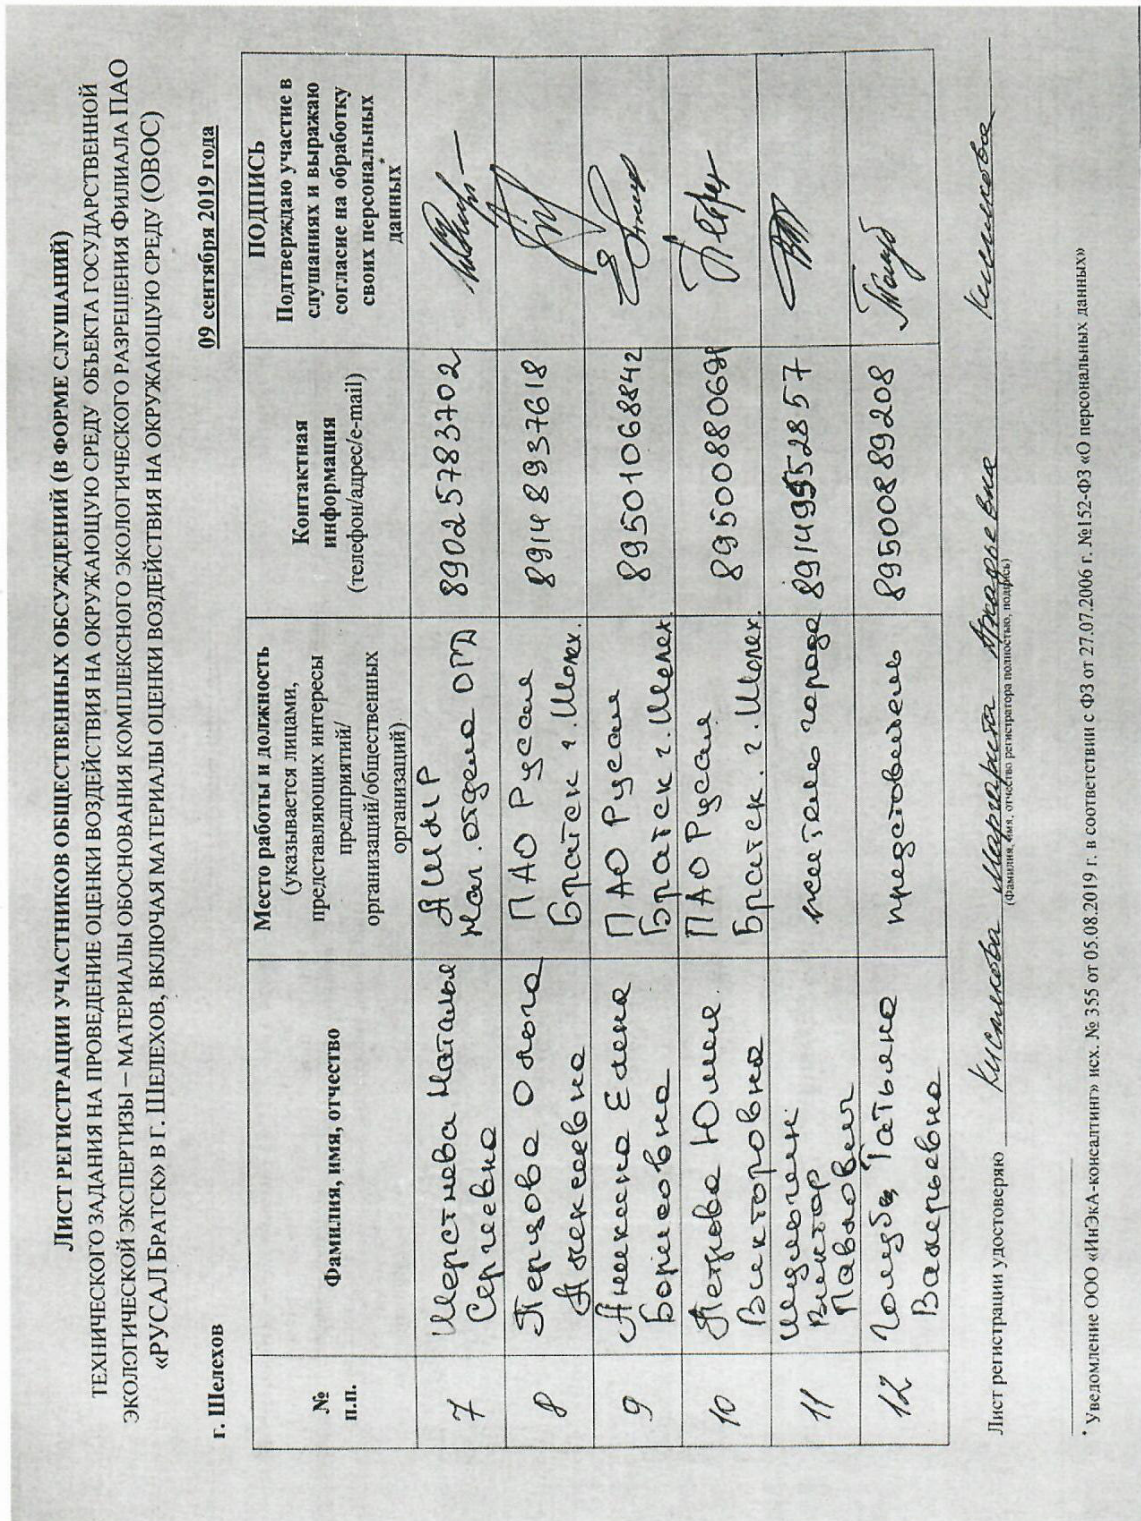 ЛИСТ РЕГИСТРАЦИИ УЧАСТНИКОВ ОБЩЕСТВЕННЫХ ОБСУЖДЕНИЙ (В ФОРМЕ СЛУШАНИЙ)
ТЕХНИЧЕСКОГО ЗАДАНИЯ НА ПРОВЕДЕНИЕ ОЦЕНКИ ВОЗДЕЙСТВИЯ НА ОКРУЖАЮЩУЮ СРЕДУ ОБЪЕКТА ГОСУДАРСТВЕННОЙ
ЭКОЛОГИЧЕСКОЙ ЭКСПЕРТИЗЫ – МАТЕРИАЛЫ ОБОСНОВАНИЯ КОМПЛЕКСНОГО ЭКОЛОГИЧЕСКОГО РАЗРЕШЕНИЯ ФИЛИАЛА ПАО
«РУСАЛ БРАТСК» В Г. ШЕЛЕХОВ, ВКЛЮЧАЯ МАТЕРИАЛЫ ОЦЕНКИ ВОЗДЕЙСТВИЯ НА ОКРУЖАЮЩУЮ СРЕДУ (ОВОС)
г. Шелехов
09 сентября 2019 года
№
п.п.
Фамилия, имя, отчество
Место работы и должность
(указывается лицами,
представляющих интересы
предприятий/
организаций/общественных
организаций)
Контактная
информация
(телефон/адрес/e-mail)
ПОДПИСЬ
Подтверждаю участие в
слушаниях и выражаю
согласие на обработку
своих персональных
данных*
7
Шерстнева Наталья
Сергеевна
Нач. отдела
89025783702
8
Перцова Ольга
Алексеевна
ПАО Русал
Братск г. Шелех.
89148937618
9
Аникина Елена
Борисовна
ПАО Русал
Братск г. Шелех.
89501068842
10
Петрова Юлия
Викторовна
ПАО Русал
Братск. г. Шелех.
11
Виктор
Павлович
житель города
12
Голубь Татьяна
Валерьевна
представитель
89500889208
Лист регистрации удостоверяю
Маргарита
(Фамилия, имя, отчество регистратора полностью, подпись)
* Уведомление ООО «ИнЭкА-консалтинг» исх. № 355 от 05.08.2019 г. в соответствии с ФЗ от 27.07.2006 г. №152-ФЗ «О персональных данных»